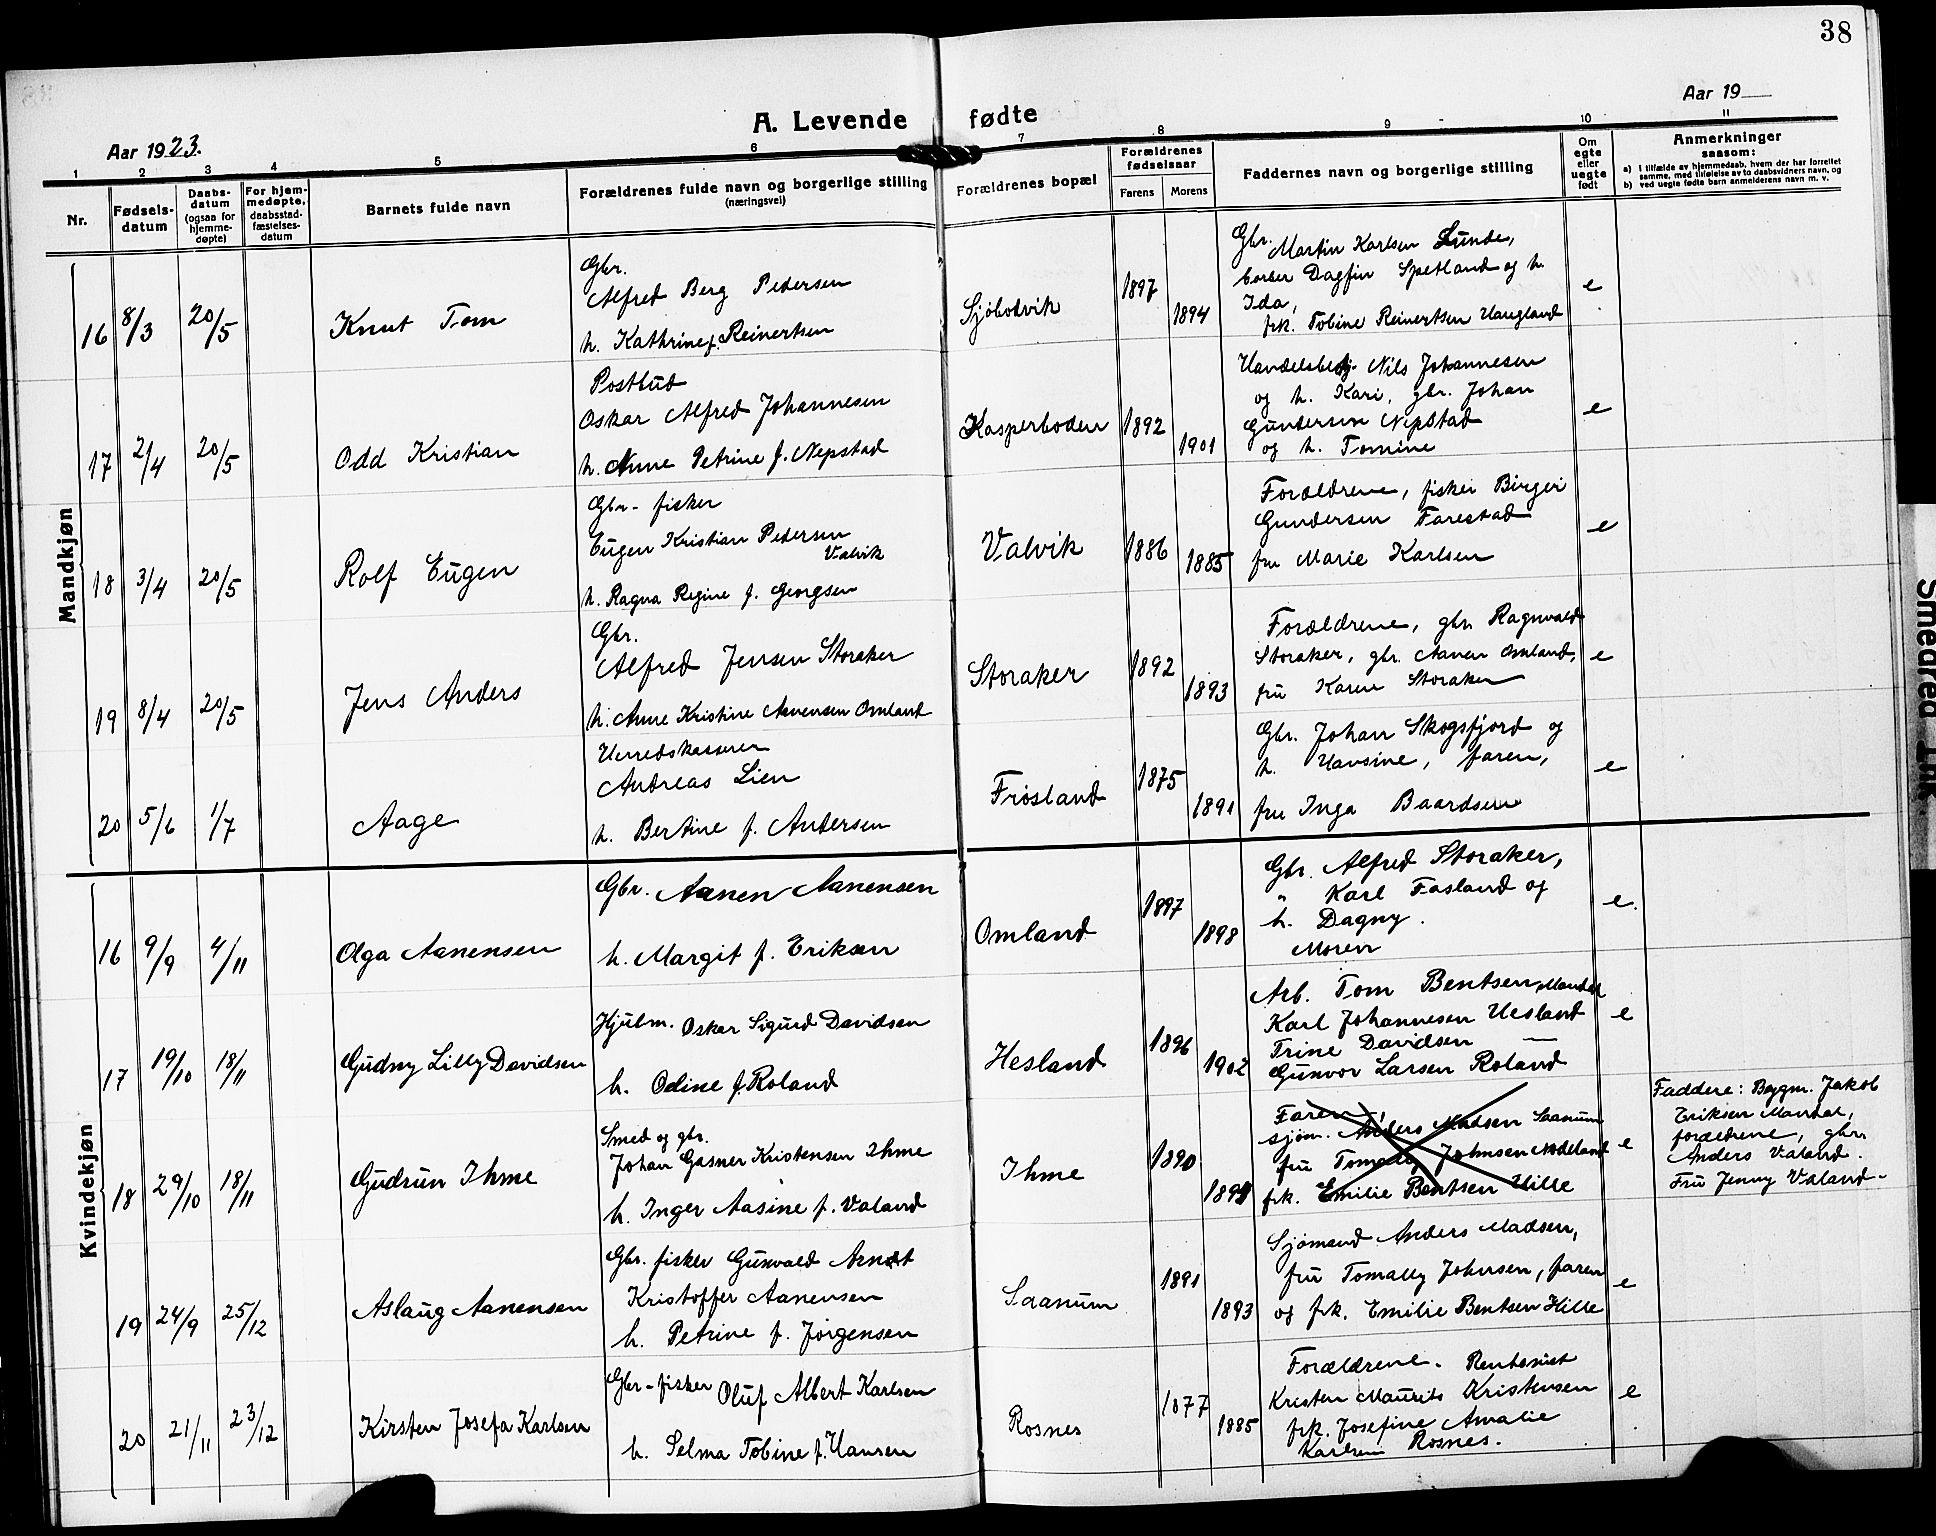 38
Aar 1923.
A. Levende fødte
Aar 19
1 2 3 4 5 6 7 8 9 10 11
Nr.
Fødsels-
datum
Daabs-
datum
(ogsaa for
hjemme-
døpte)
For hjem-
medøpte,
daabsstad-
fæstelses-
datum
Barnets fulde navn
Forældrenes fulde navn og borgerlige stilling
(næringsvei)
Forældrenes bopæl
Forældrenes
fødselsaar
Farens Morens
Faddernes navn og borgerlige stilling
Om
egte
eller
uegte
født
Anmerkninger
saasom:
a) i tilfælde av hjemmedaab, hvem der har forrettet
samme, med tilføielse av to daabsvidners navn, og
b) ved uegte fødte barn anmelderens navn m. v.
Mandkjøn
16 8/3 20/5 Knut Tom
Gbr.
Alfred Berg Pedersen
h. Kathrine f. Reinertsen
Sjöbodvik 1897 1894
Gbr. Martin Karlsen Lunde,
Dagfin Spetland og h.
Ida,
frk. Tobine Reinertsen Haugland
e
17 2/4 20/5 Odd Kristian
Postbud
Oskar Alfred Johannesen
h. Anne Petrine f. Nepstad
Kasperboden 1892 1901
Handelsbetj. Nils Johannesen
og h. Kari, gbr. Johan
Gundersen Nepstad
og h. Tomine
e
18 3/4 20/5 Rolf Eugen
Gbr.- fisker
Eugen Kristian Pedersen
Valvik
h. Ragna Regine f. Georgsen
Valvik 1886 1885
Forældrene, fisker Birger
Gundersen Farestad
fru Marie Karlsen
e
19 8/4 20/5 Jens Anders
Gbr.
Alfred Jensen Storaker
h. Anne Kristine Aanensen Omland
Storaker 1892 1893
Forældrene, gbr. Ragnvald
Storaker, gbr. Aanen Omland,
fru Karen Storaker
e
20 5/6 1/7 Aage
Herredskasserer
Andreas Lien
h. Bertine f. Andersen
Frøsland 1875 1891
Gbr. Johan Skogsfjord og
h. Hansine, faren,
fru Inga Baardsen
e
Kvindekjøn
16 9/9 4/11 Olga Aanensen
Gbr. Aanen Aanensen
h. Margit f. Eriksen
Omland 1897 1898
Gbr. Alfred Storaker,
" Karl Fasland og
h. Dagny.
Moren
e.
17 19/10 18/11 Gudny Lilly Davidsen
Hjulm. Oskar Sigurd Davidsen
h. Odine f. Roland
Hesland 1896 1902
Arb. Tom Bentsen, Mandal
Karl Johannesen Hesland
Trine Davidsen —
Gunvor Larsen Roland
e
18 29/10 18/11 Gudrun Ihme
Smed og gbr.
Johan Gasner Kristensen Ihme
h. Inger Aasine f. Valand
Ihme 1890
Faren,
sjøm. Anders Madsen Saanum
fru Tomally Johnsen Nodeland
frk. Emilie Bentsen Hille
e
Faddere: Bygm. Jakob
Eriksen Mandal,
forældrene, gbr.
Anders Valand.
Fru Jenny Valand-
19 24/9 25/12 Aslaug Aanensen
Gbr. fisker Gunvald Arndt
Kristoffer Aanensen
h. Petrine f. Jørgensen
Saanum 1891 1893
Sjømand Anders Madsen,
fru Tomally Johnsen, faren
og frk. Emilie Bentsen Hille
e
20 21/11 23/12 Kirsten Josefa Karlsen
Gbr-fisker Oluf Albert Karlsen
h. Selma Tobine f. Hansen
Rosnes 1877 1885
Forældrene. Rentenist
Kristen Maurits Kristensen
frk. Josefine Amalie
Karlsen Rosnes.
e